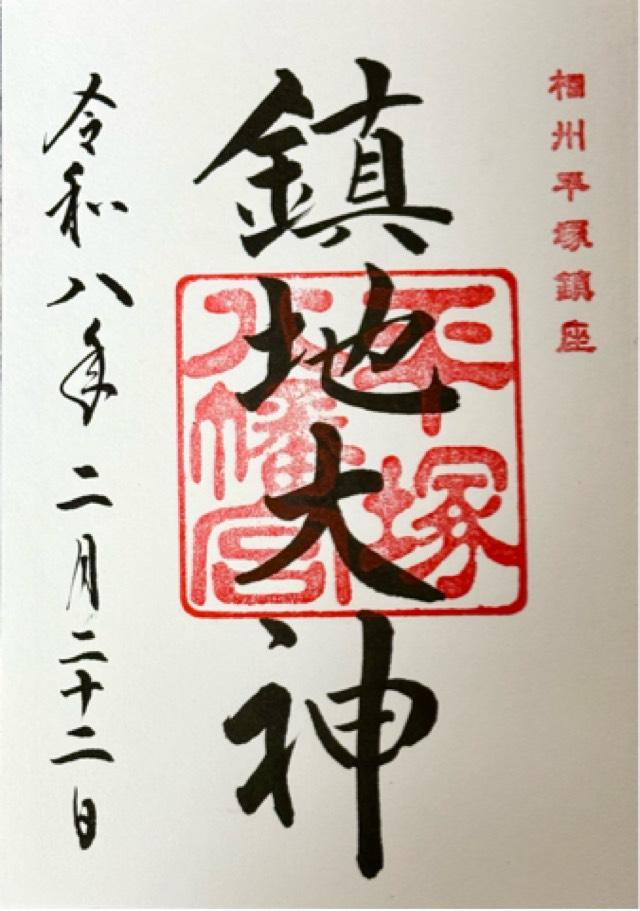 相州平塚鎮座
鎮地大神
平塚
八幡宮
令和八年二月二十二日